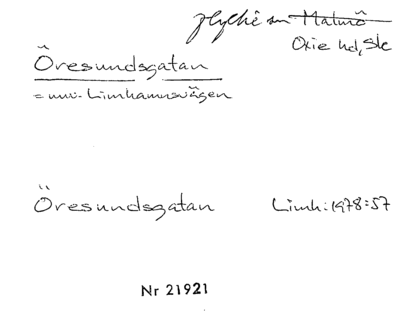 Malmö
Oxie hd, Sk
Öresundsgatan
= nuv. Limhamnsvägen
Öresundsgatan Limh: 1978:57
Nr 21921